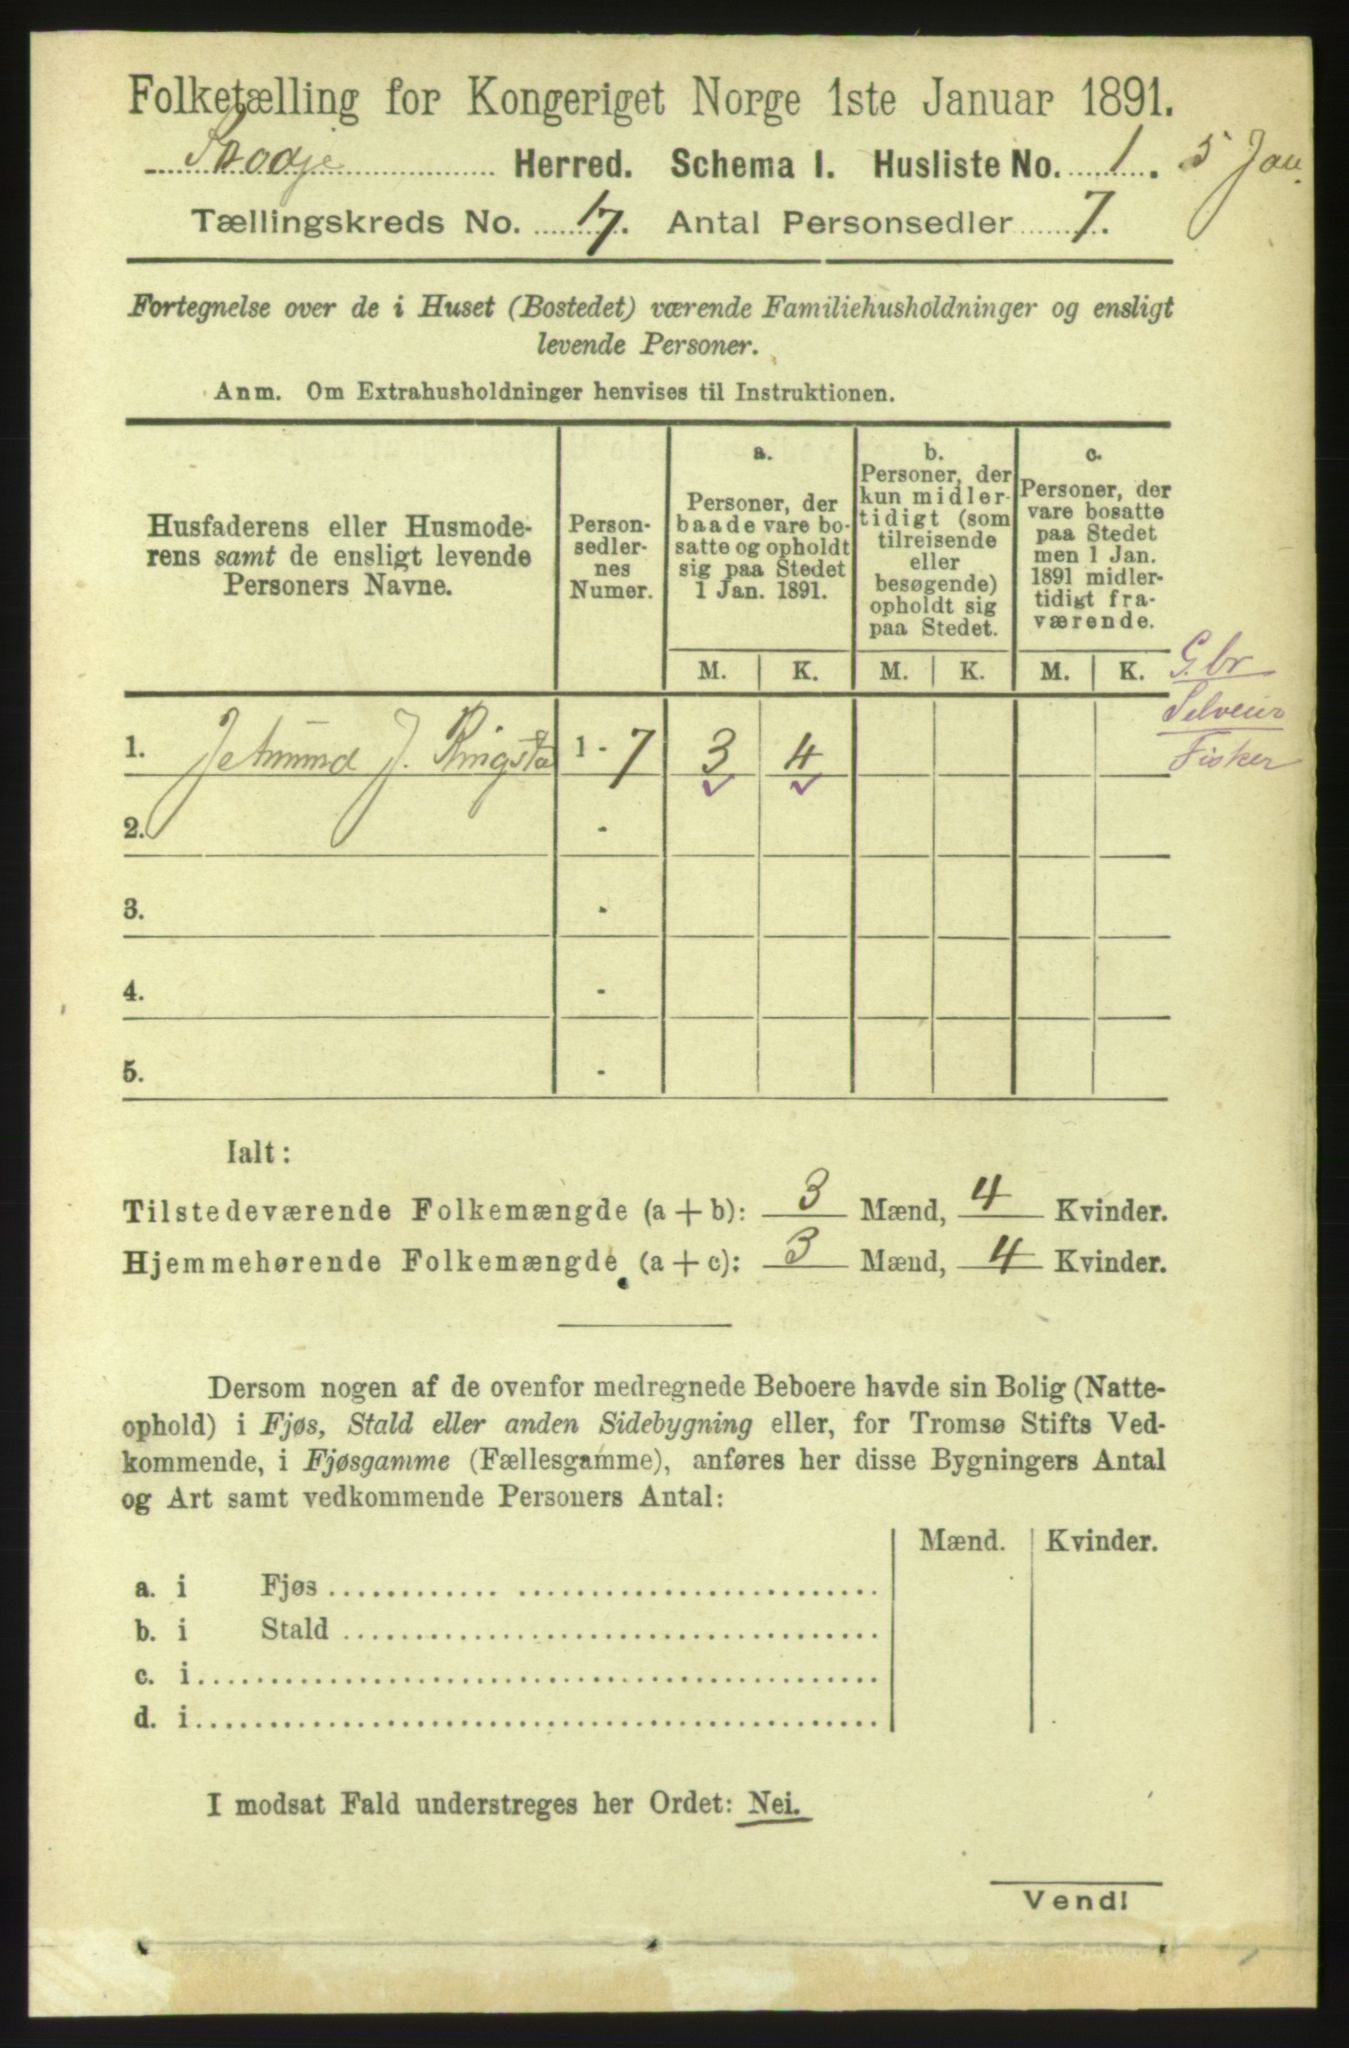 Folketælling for Kongeriget Norge 1ste Januar 1891.
Skodje Herred. Schema I. Husliste No. 1. 5 Jan.
Tællingskreds No. 17. Antal Personsedler 7.
Fortegnelse over de i Huset (Bostedet) værende Familiehusholdninger og ensligt
levende Personer.
Anm. Om Extrahusholdninger henvises til Instruktionen.
Husfaderens eller Husmode-
rens samt de ensligt levende
Personers Navne.
Person-
sedler-
nes
Numer.
a.
Personer, der
baade vare bo-
satte og opholdt
sig paa Stedet
1 Jan. 1891.
b.
Personer, der
kun midler-
tidigt (som
tilreisende
eller
besøgende)
opholdt sig
paa Stedet.
c.
Personer, der
vare bosatte
paa Stedet
men 1 Jan.
1891 midler-
tidigt fra-
værende.
M. K. M. K. M. K.
G.br
Selveier
Fisker
1. Jetmund J. Ringstad 1 - 7 3 4
2. -
3. -
4. -
5. -
Ialt:
Tilstedeværende Folkemængde (a + b): 3 Mænd, 4 Kvinder.
Hjemmehørende Folkemængde (a + c): 3 Mænd, 4 Kvinder.
Dersom nogen af de ovenfor medregnede Beboere havde sin Bolig (Natte-
ophold) i Fjøs, Stald eller anden Sidebygning eller, for Tromsø Stifts Ved-
kommende, i Fjøsgamme (Fællesgamme), anføres her disse Bygningers Antal
og Art samt vedkommende Personers Antal:
Mænd. Kvinder.
a. i Fjøs
b. i Stald
c. i
d. i
I modsat Fald understreges her Ordet: Nei.
Vend!